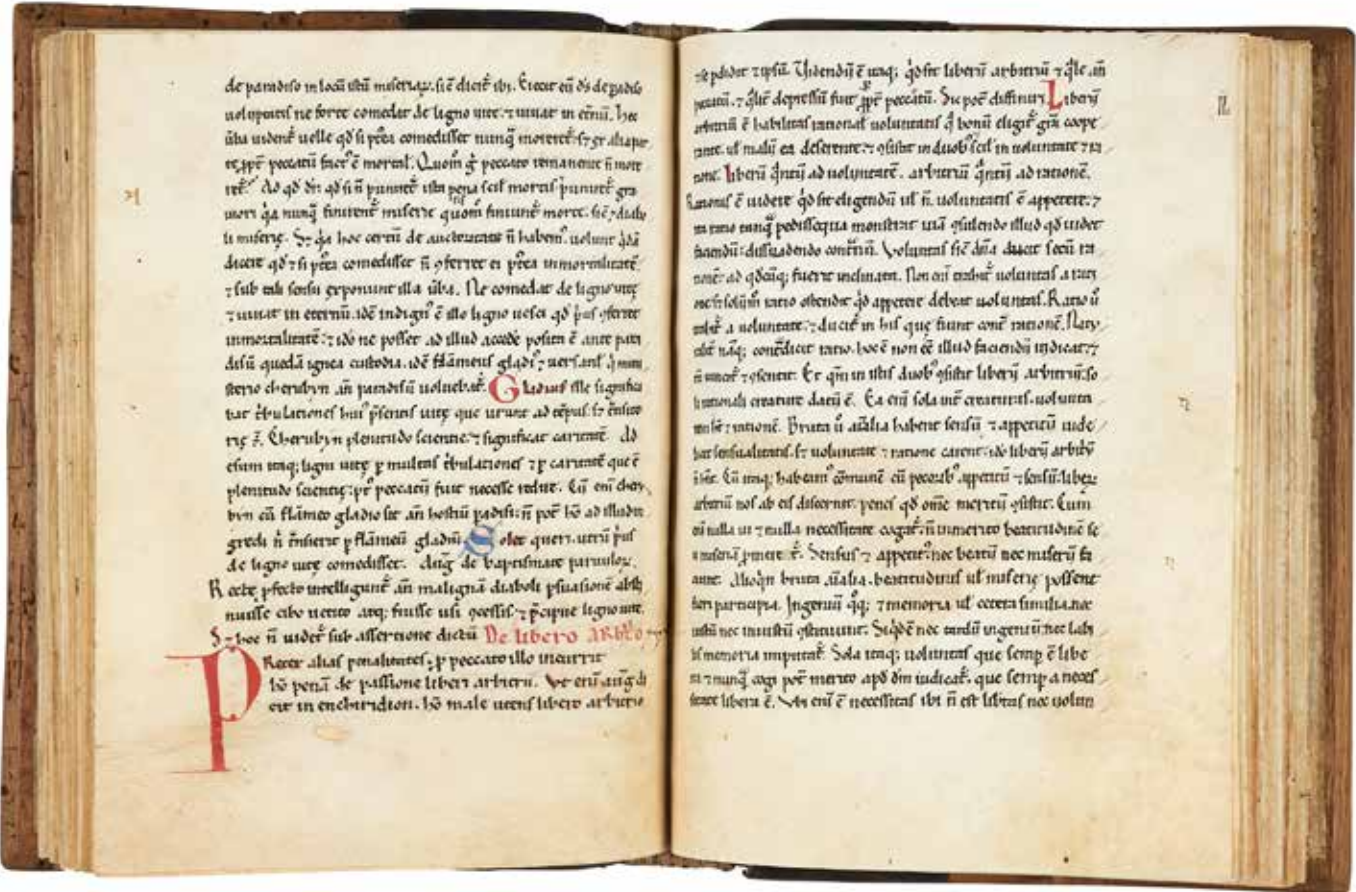 de paradiso in locū istū miseriaꝝ. sic̄ dicit̄ ibi. Eiecit eū d̄s de padiso
uoluptatis ne forte comedat de ligno uite. ⁊ uiuat in et̄nū. hec
ūba uident̄ uelle qd̄ si p̄ea comedisset nunq̄ moreret̄.
peccatū fact᷒ ē mortal̄. Quom̄ ḡ peccato remanente n̄ more
ret̄. Ad qd̄ dr̄. qd̄ si n̄ puniret̄ ista pena scil̄ mortis puniret̄ gra
uiori q̇a nunq̄ finirent̄ miserie quom̄ finiunt̄ morte. sic̄ ⁊ diabo
li miserie. S⁊ q̇a hoc certū de auctoritate n̄ habem᷒. uolunt q̇dā
dicere qd̄ ⁊ si p̄ea comedisset n̄ ꝯferret ei p̄ea inmortalitatē.
⁊ sub tali sensu exponunt illa ūba. Ne comedat de ligno uitę
⁊ uiuat in eternū. idē indign᷒ ē illo ligno uesci qd̄ ṗus ꝯferret
inmortalitatē. ⁊ idō ne posset ad illud accedē posita ē ante para
disū quedā ignea custodia. idē flāmeus gladi᷒ ⁊ uersatil̄ q̇ mini
sterio cherubyn añ paradisū uoluebat̄. Gladius iste significa
bat t̄bulationes hui᷒ p̄sentis uitę que urunt ad tēpus. s⁊ t̄nsito
rię s̄. Cherubyn plenitudo scientie. ⁊ significat caritatē. Ad
esum itaq; ligni uitę p̱ multas t̄bulationes ⁊ p̱ caritatē que ē
plenitudo scientię. p᷒ peccatū fuit necesse redire. Cū eni cheru
byn cū flāmeo gladio sit añ hostiū padisi. n̄ pot̄ hō ad illud in
gredi n̄ t̄nsierit p̱ flāmeū gladiū. Solet queri. utrū ṗus
de ligno uitę comedisset. Aug̃ de baptismate paruuloꝝ.
Recte p̱fecto intelligunt̄ añ malignā diaboli p̱suasionē absti
nuisse cibo uetito atq; fuisse usi ꝯcessis. ⁊ p̄cipue ligno uite.
S⁊ hoc n̄ uidet̄ sub assertione dictū De libero arbr̄io
Preter alias penalitates. p̱ peccato illo incurrit
hō penā de passione liberi arbitrii. Vt enī aug̃ di
cit in enchiridion. hō male utens libero arbitrio
se p̱didit ⁊ ipsū. Videndū ē itaq; qd̄ sit liberū arbitriū ⁊ q̄le añ
peccatū. ⁊ q̄lit̄ depressū fuit ꝓpt̄ peccatū. Sic pot̄ diffiniri. Liberū
arbitriū ē habilitas rational̄ uoluntatis q̇ bonū eligit̄ gr̄a coope
rante. ul̄ malū ea deserente. ⁊ ꝯsistit in duob᷒ scil̄ in uoluntate ⁊ ra
tione. Liberū q̄ntū ad uoluntatē. arbitriū q̄ntū ad rationē.
Rationis ē uidere qd̄ sit eligendū ul̄ n̄. uoluntatis ē appetere. ⁊
ita ratio tanq̄ pedissequa monstrat uiā ꝯsulendo illud qd̄ uidet
faciendū. dissuadendo contrariū. Voluntas sic̄ dn̄a ducit secū ra
tionē. ad qd̄cūq; fuerit inclinata. Non eni trahit̄ uoluntas a rati
one s⁊ solūm ratio ostendit qd̄ appetere debeat uoluntas. Ratio ū
trahit̄ a uoluntate. ⁊ ducit̄ in his que fiunt cont̄ rationē. Naty
rabit naq; cont̄dicit ratio. hoc ē non eē illud faciendū iudicat. ⁊
n̄ uincit̄ ⁊ ꝯsentit. Et qm̄ in istis duob᷒ ꝯsistit liberū arbitriū. so
li rationali creature datū ē. Ea eni sola int̄ creaturas. uolunta
tem h̄t ⁊ rationē. Bruta ū aīalia habent sensū ⁊ appetitū uide
licet sensualitatis. s⁊ uoluntate ⁊ ratione carent. idō liberū arbitriū
n̄ hn̄t. Cū itaq; habeam᷒ cōmune cū pecorib᷒ appetitū ⁊ sensū. liberū
arbitriū nos ab eis discernit. penes qd̄ omē meritū ꝯsistit. Cum
eni nulla ui ⁊ nulla necessitate cogat̄. n̄ inmerito beatitudinē
Sensus ⁊ appetit᷒. nec beatū nec miserū fa
ciunt. Alioq̇n bruta aīalia. beatitudinis ul̄ miserię possent
fieri participia. Ingeniū q̇q; ⁊ memoria ul̄ cetera similia. nec
iustū nec iniustū ꝯstituunt. Siqd̄ē nec tardū ingeniū. nec labi
lis memoria imputat̄. Sola itaq; uoluntas que semp̱ ē libe
ra ⁊ nunq̄ cogi pot̄ merito apd̄ dm̄ iudicat̄. que semp̱ a neces
sitate libera ē. Vbi eni ē necessitas ibi n̄ est lib̄tas nec uolun